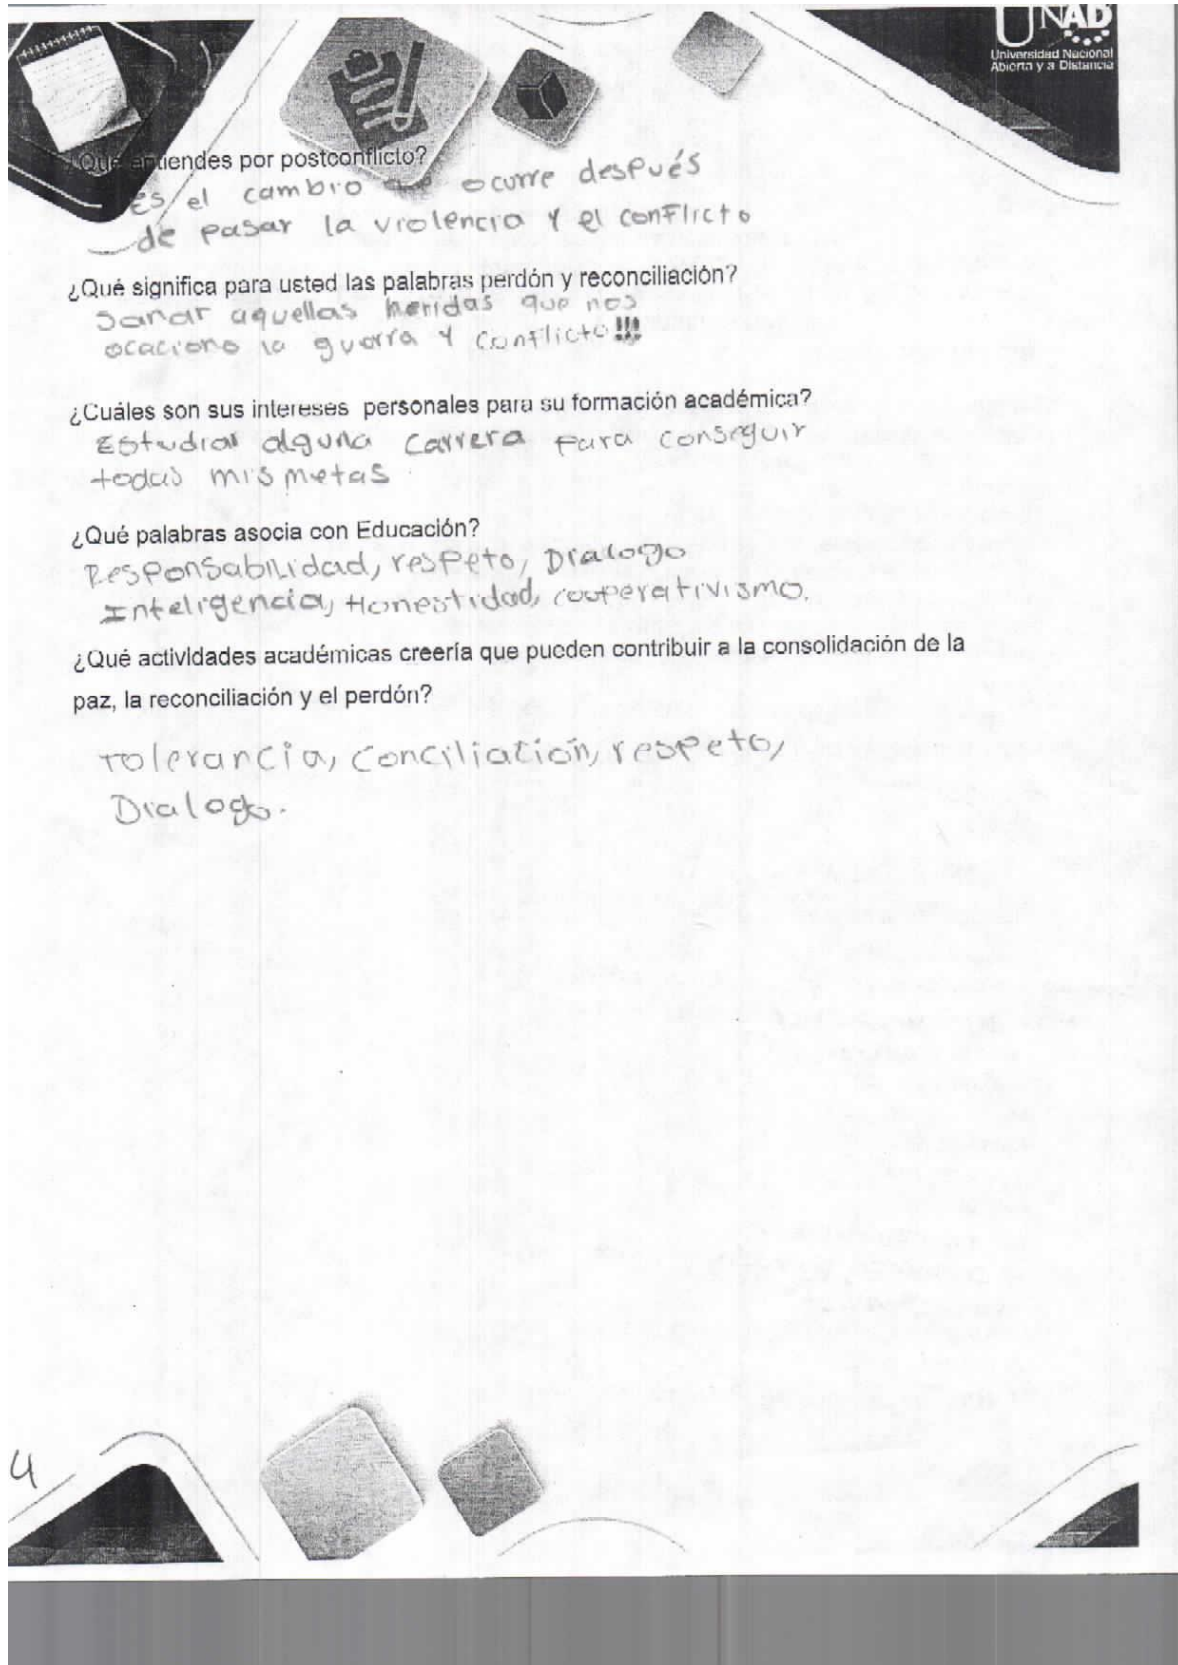 UNAD
Universidad Nacional
Abierta y a Distancia
¿Qué entiendes por postconflicto?
Es el cambio que ocurre después
de pasar la violencia y el conflicto
¿Qué significa para usted las palabras perdón y reconciliación?
Sanar aquellas heridas que nos
ocaciono la guerra y conflicto!!!
¿Cuáles son sus intereses personales para su formación académica?
Estudiar alguna carrera para conseguir
todas mis metas
¿Qué palabras asocia con Educación?
Responsabilidad, respeto, Dialogo
Inteligencia, Honestidad, cooperativismo.
¿Qué actividades académicas creería que pueden contribuir a la consolidación de la
paz, la reconciliación y el perdón?
Tolerancia, Conciliación, respeto,
Dialogo.
4